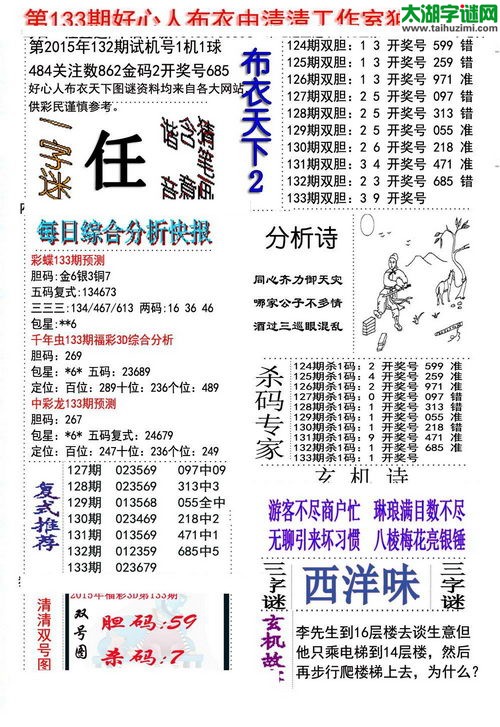 太湖字谜网
www.taihuzimi.com
第133期好心人布衣由清清工作室独
第2015年132期试机号1机1球
484关注数862金码2开奖号685
好心人布衣天下图谜资料均来自各大网站
供彩民谨慎参考。
一字迷
任
布衣天下2
124期双胆: 1 3 开奖号 599 错
125期双胆: 1 3 开奖号 259 错
126期双胆: 1 3 开奖号 971 准
127期双胆: 2 5 开奖号 097 错
128期双胆: 2 5 开奖号 313 错
129期双胆: 2 5 开奖号 055 准
130期双胆: 2 6 开奖号 218 准
131期双胆: 3 4 开奖号 471 准
132期双胆: 2 3 开奖号 685 错
133期双胆: 3 9 开奖号
每日综合分析快报
彩蝶133期预测
胆码:金6银3铜7
五码复式:134673
三三三:134/467/613 两码:16 36 46
包星:**6
千年虫133期福彩3D综合分析
胆码: 269
包星: *6* 五码: 23689
定位: 百位: 289十位: 236个位: 489
中彩龙133期预测
胆码: 267
包星: *6* 五码复式: 24679
定位: 百位: 247十位: 236个位: 249
分析诗
同心齐力御天灾
哪家公子不多情
酒过三巡眼混乱
杀码专家
124期杀1码: 2 开奖号 599 准
125期杀1码: 4 开奖号 259 准
126期杀1码: 2 开奖号 971 准
127期杀1码: 0 开奖号 097 错
128期杀1码: 1 开奖号 313 错
129期杀1码: 1 开奖号 055 准
130期杀1码: 1 开奖号 218 错
131期杀1码: 9 开奖号 471 准
132期杀1码: 2 开奖号 685 准
133期杀1码: 0 开奖号
复式推荐
127期 023569 097中09
128期 023569 313中3
129期 013568 055全中
130期 023469 218中2
131期 013569 471中1
132期 012359 685中5
133期 023679
玄机诗
游客不尽商户忙 琳琅满目数不尽
无聊引来坏习惯 八棱梅花亮银锤
三字谜
西洋味
三字谜
清清双号图
2015年福彩3D第133期
双号图
胆码:59
杀码:7
玄机故
李先生到16层楼去谈生意但
他只乘电梯到14层楼，然后
再步行爬楼梯上去，为什么?